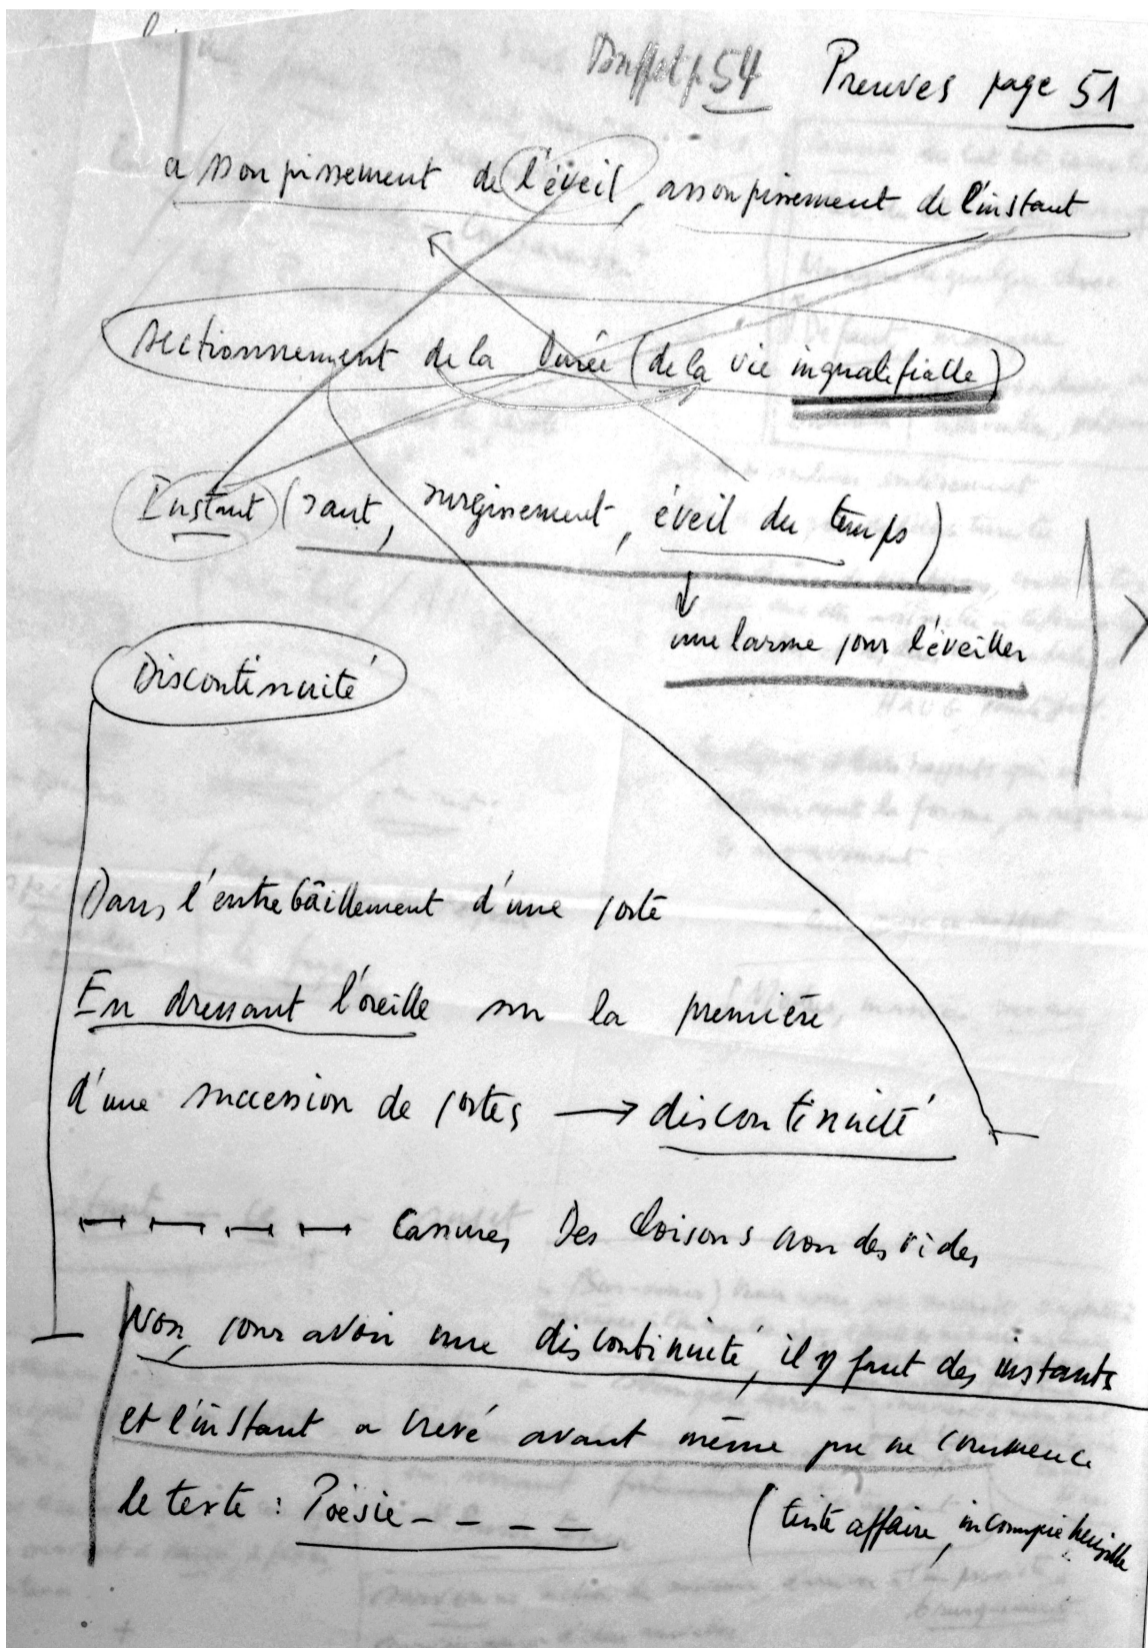 p. 54 Preuves page 51
assoupissement de l'éveil, assoupissement de l'instant
sectionnement de la Durée (de la vie inqualifiable)
Instant (saut, surgissement, éveil du temps)
une larme pour l'éveiller
Discontinuité
Dans l'entrebâillement d'une porte
En dressant l'oreille sur la première
d'une succession de portes → discontinuité
Cassures Des cloisons non des vides
Non, pour avoir une discontinuité, il y faut des instants
et l'instant a crevé avant même que ne commence
le texte : Poésie - - - -
(triste affaire, incompréhensible